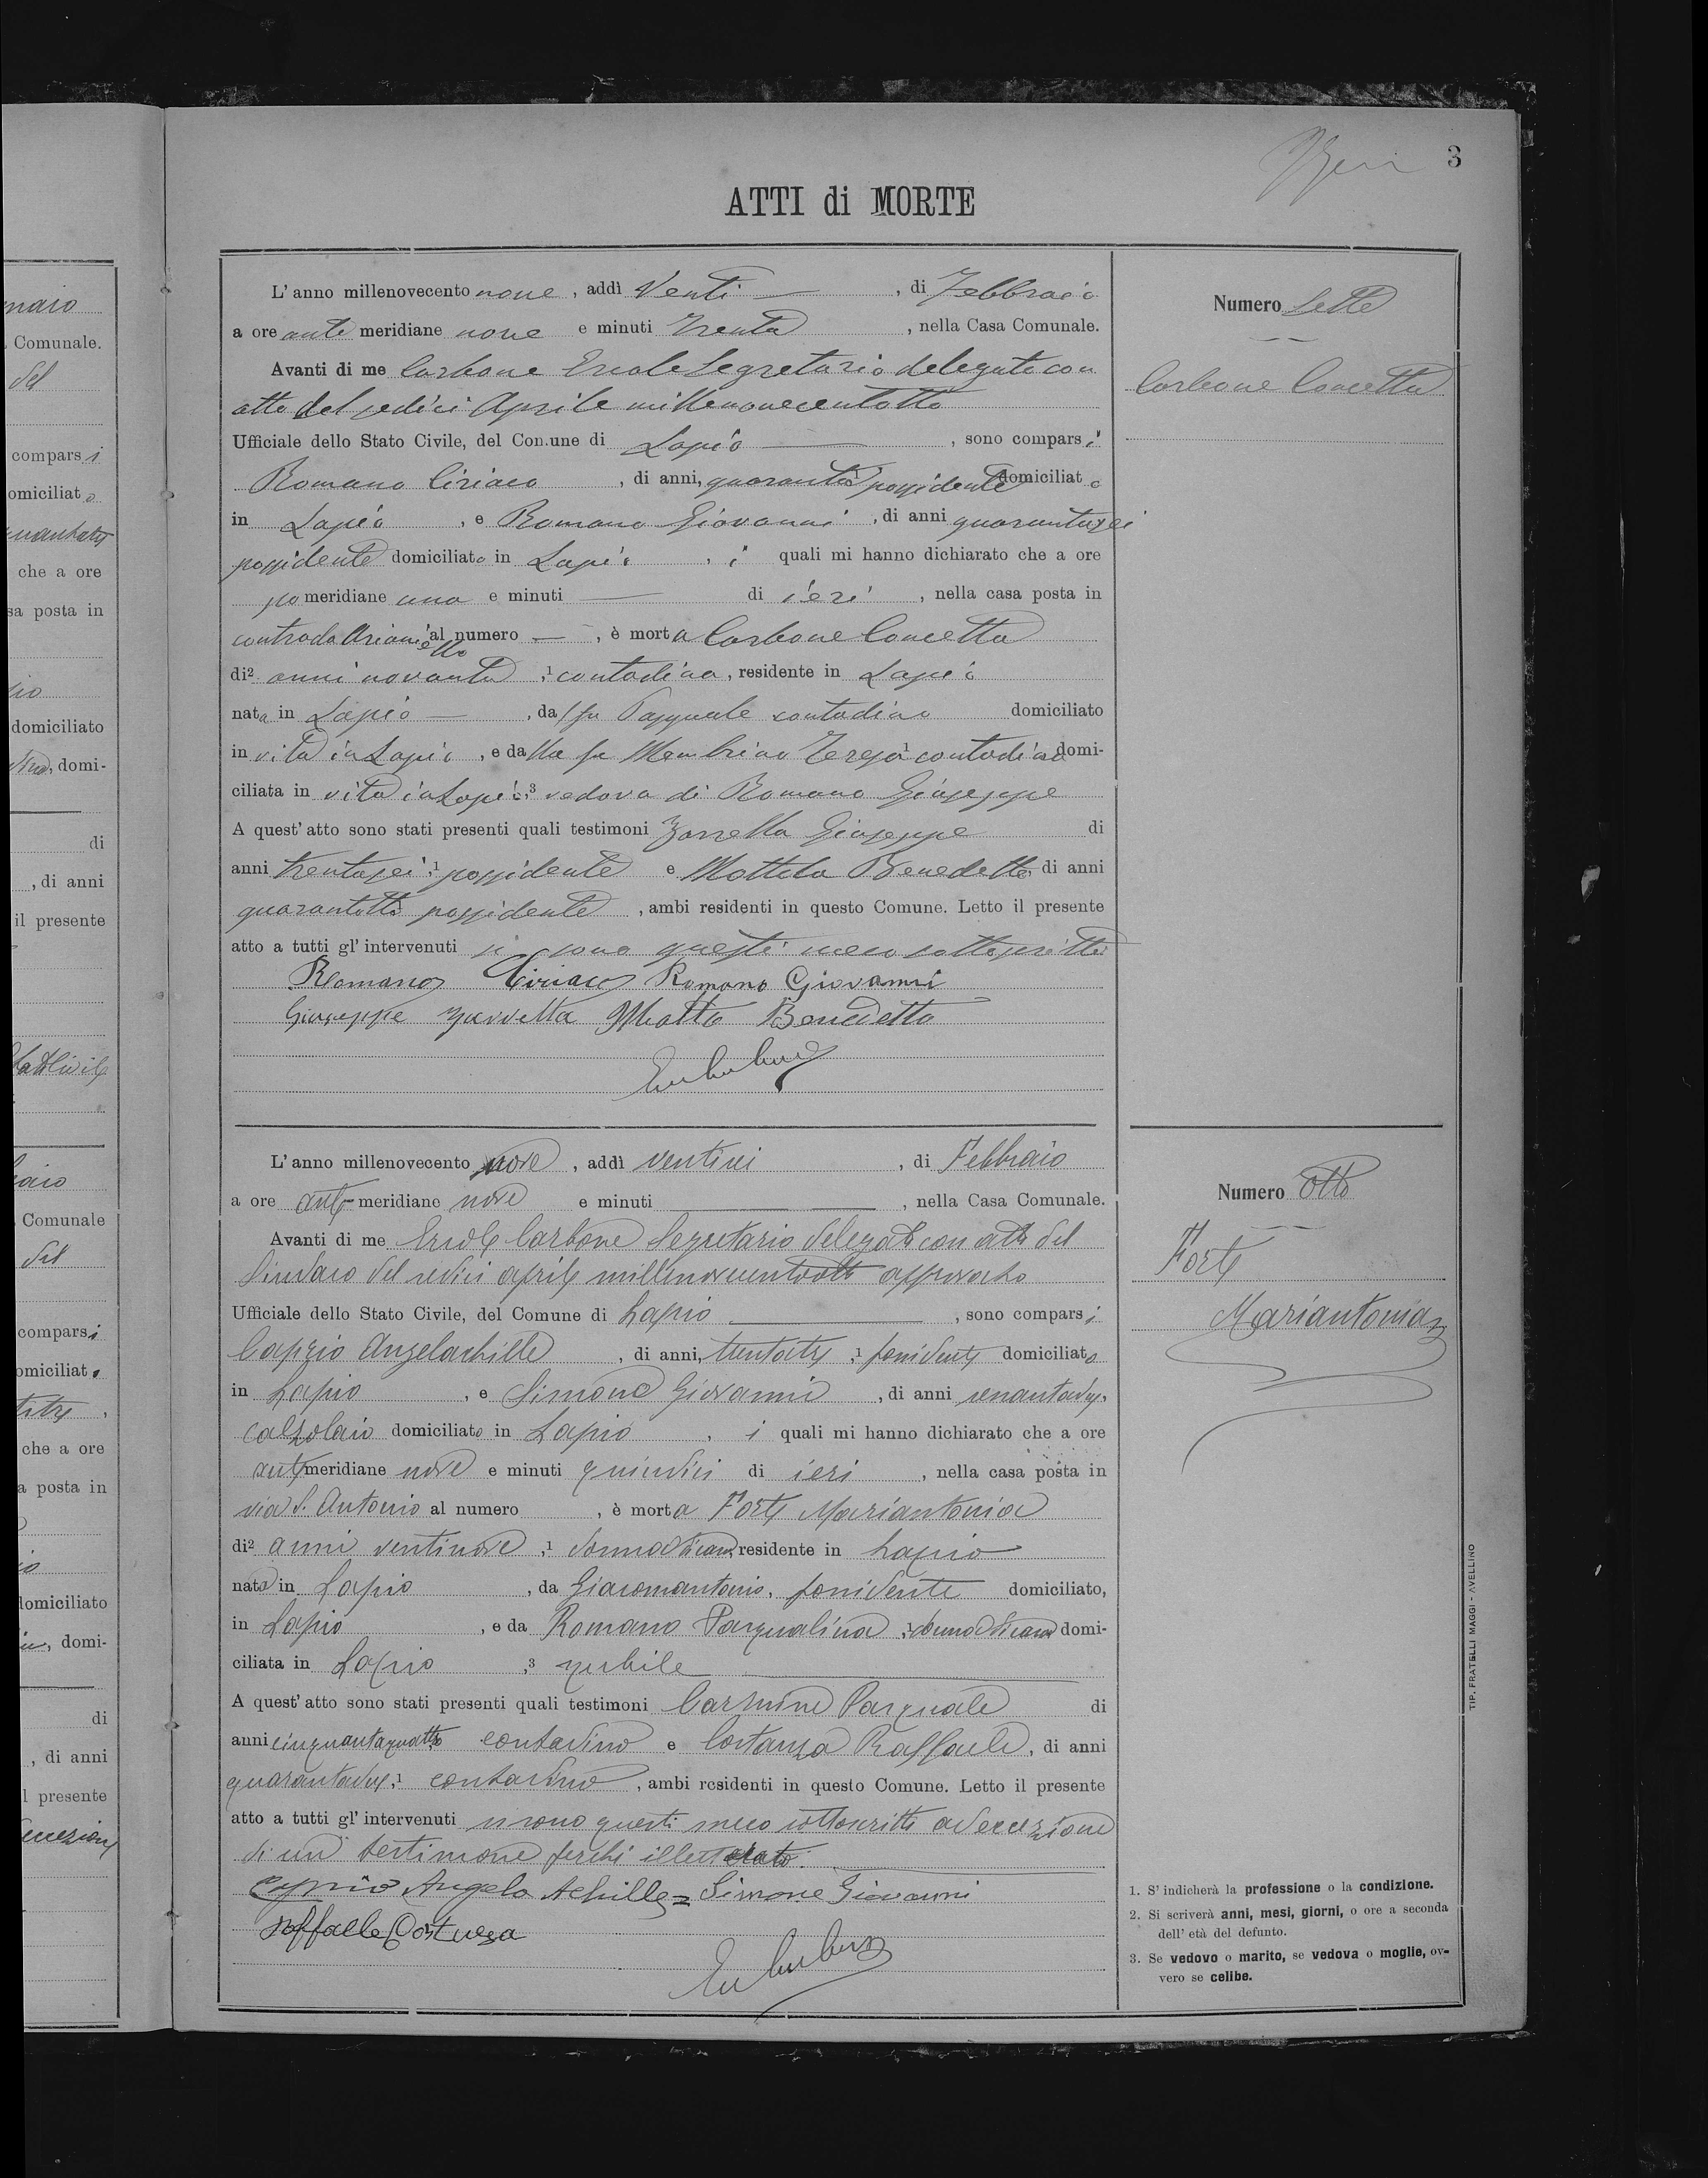 3
ATTI di MORTE
L'anno millenovecento nove, addì Venti, di Febbraio
a ore ante meridiane nove e minuti trenta, nella Casa Comunale.
Avanti di me Carbone Ercole Segretario delegato con
atto del sedici Aprile millenovecentotto
Ufficiale dello Stato Civile, del Comune di Lapio, sono comparsi
Romano Ciriaco, di anni, quaranta possidente domiciliato
in Lapio, e Romano Giovanni, di anni quarantasei
possidente domiciliato in Lapio, i quali mi hanno dichiarato che a ore
pomeridiane una e minuti — di ieri, nella casa posta in
contrada Arianiello al numero —, è morta Carbone Concetta
di² anni novanta,¹ contadina, residente in Lapio
nata in Lapio —, da fu Pasquale contadino domiciliato
in vita in Lapio, e dalla fu Membrino Teresa¹ contadina domi-
ciliata in vita in Lapio,³ vedova di Romano Giuseppe
A quest'atto sono stati presenti quali testimoni Zarrella Giuseppe di
anni trentasei,¹ possidente e Mottola Benedetto di anni
quarantotto possidente, ambi residenti in questo Comune. Letto il presente
atto a tutti gl'intervenuti si sono questi meco sottoscritti
Romano Ciriaco Romano Giovanni
Giuseppe Zarrella Motta Benedetto
Numero Sette
Carbone Concetta
L'anno millenovecento nove, addì ventisei, di Febbraio
a ore antimeridiane nove e minuti —, nella Casa Comunale.
Avanti di me Ercole Carbone Segretario delegato con atto del
Sindaco del sedici aprile millenovecentootto approvato
Ufficiale dello Stato Civile, del Comune di Lapio, sono comparsi
Caprio Angelachille, di anni, trentatre,¹ possidente domiciliato
in Lapio, e Simone Giovanni, di anni sessantadue,
calzolaio domiciliato in Lapio, i quali mi hanno dichiarato che a ore
antimeridiane nove e minuti quindici di ieri, nella casa posta in
via S. Antonio al numero, è morta Forte Mariantonia
di² anni ventinove,¹ donna di casa, residente in Lapio
nata in Lapio, da Giacomantonio, possidente domiciliato,
in Lapio, e da Romano Pasqualina,¹ donna di casa domi-
ciliata in Lapio,³ nubile
A quest'atto sono stati presenti quali testimoni Carmine Pasquale di
anni cinquantaquattro contadino e Costanza Raffaele, di anni
quarantadue,¹ contadino, ambi residenti in questo Comune. Letto il presente
atto a tutti gl'intervenuti si sono questi meco sottoscritti ad eccezione
di un testimone perchè illetterato.
Caprio Angelo Achille = Simone Giovanni
Numero Otto
Forte
Mariantonia
1. S'indicherà la professione o la condizione.
2. Si scriverà anni, mesi, giorni, o ore a seconda
dell'età del defunto.
3. Se vedovo o marito, se vedova o moglie, ov-
vero se celibe.
TIP. FRATELLI MAGGI - AVELLINO